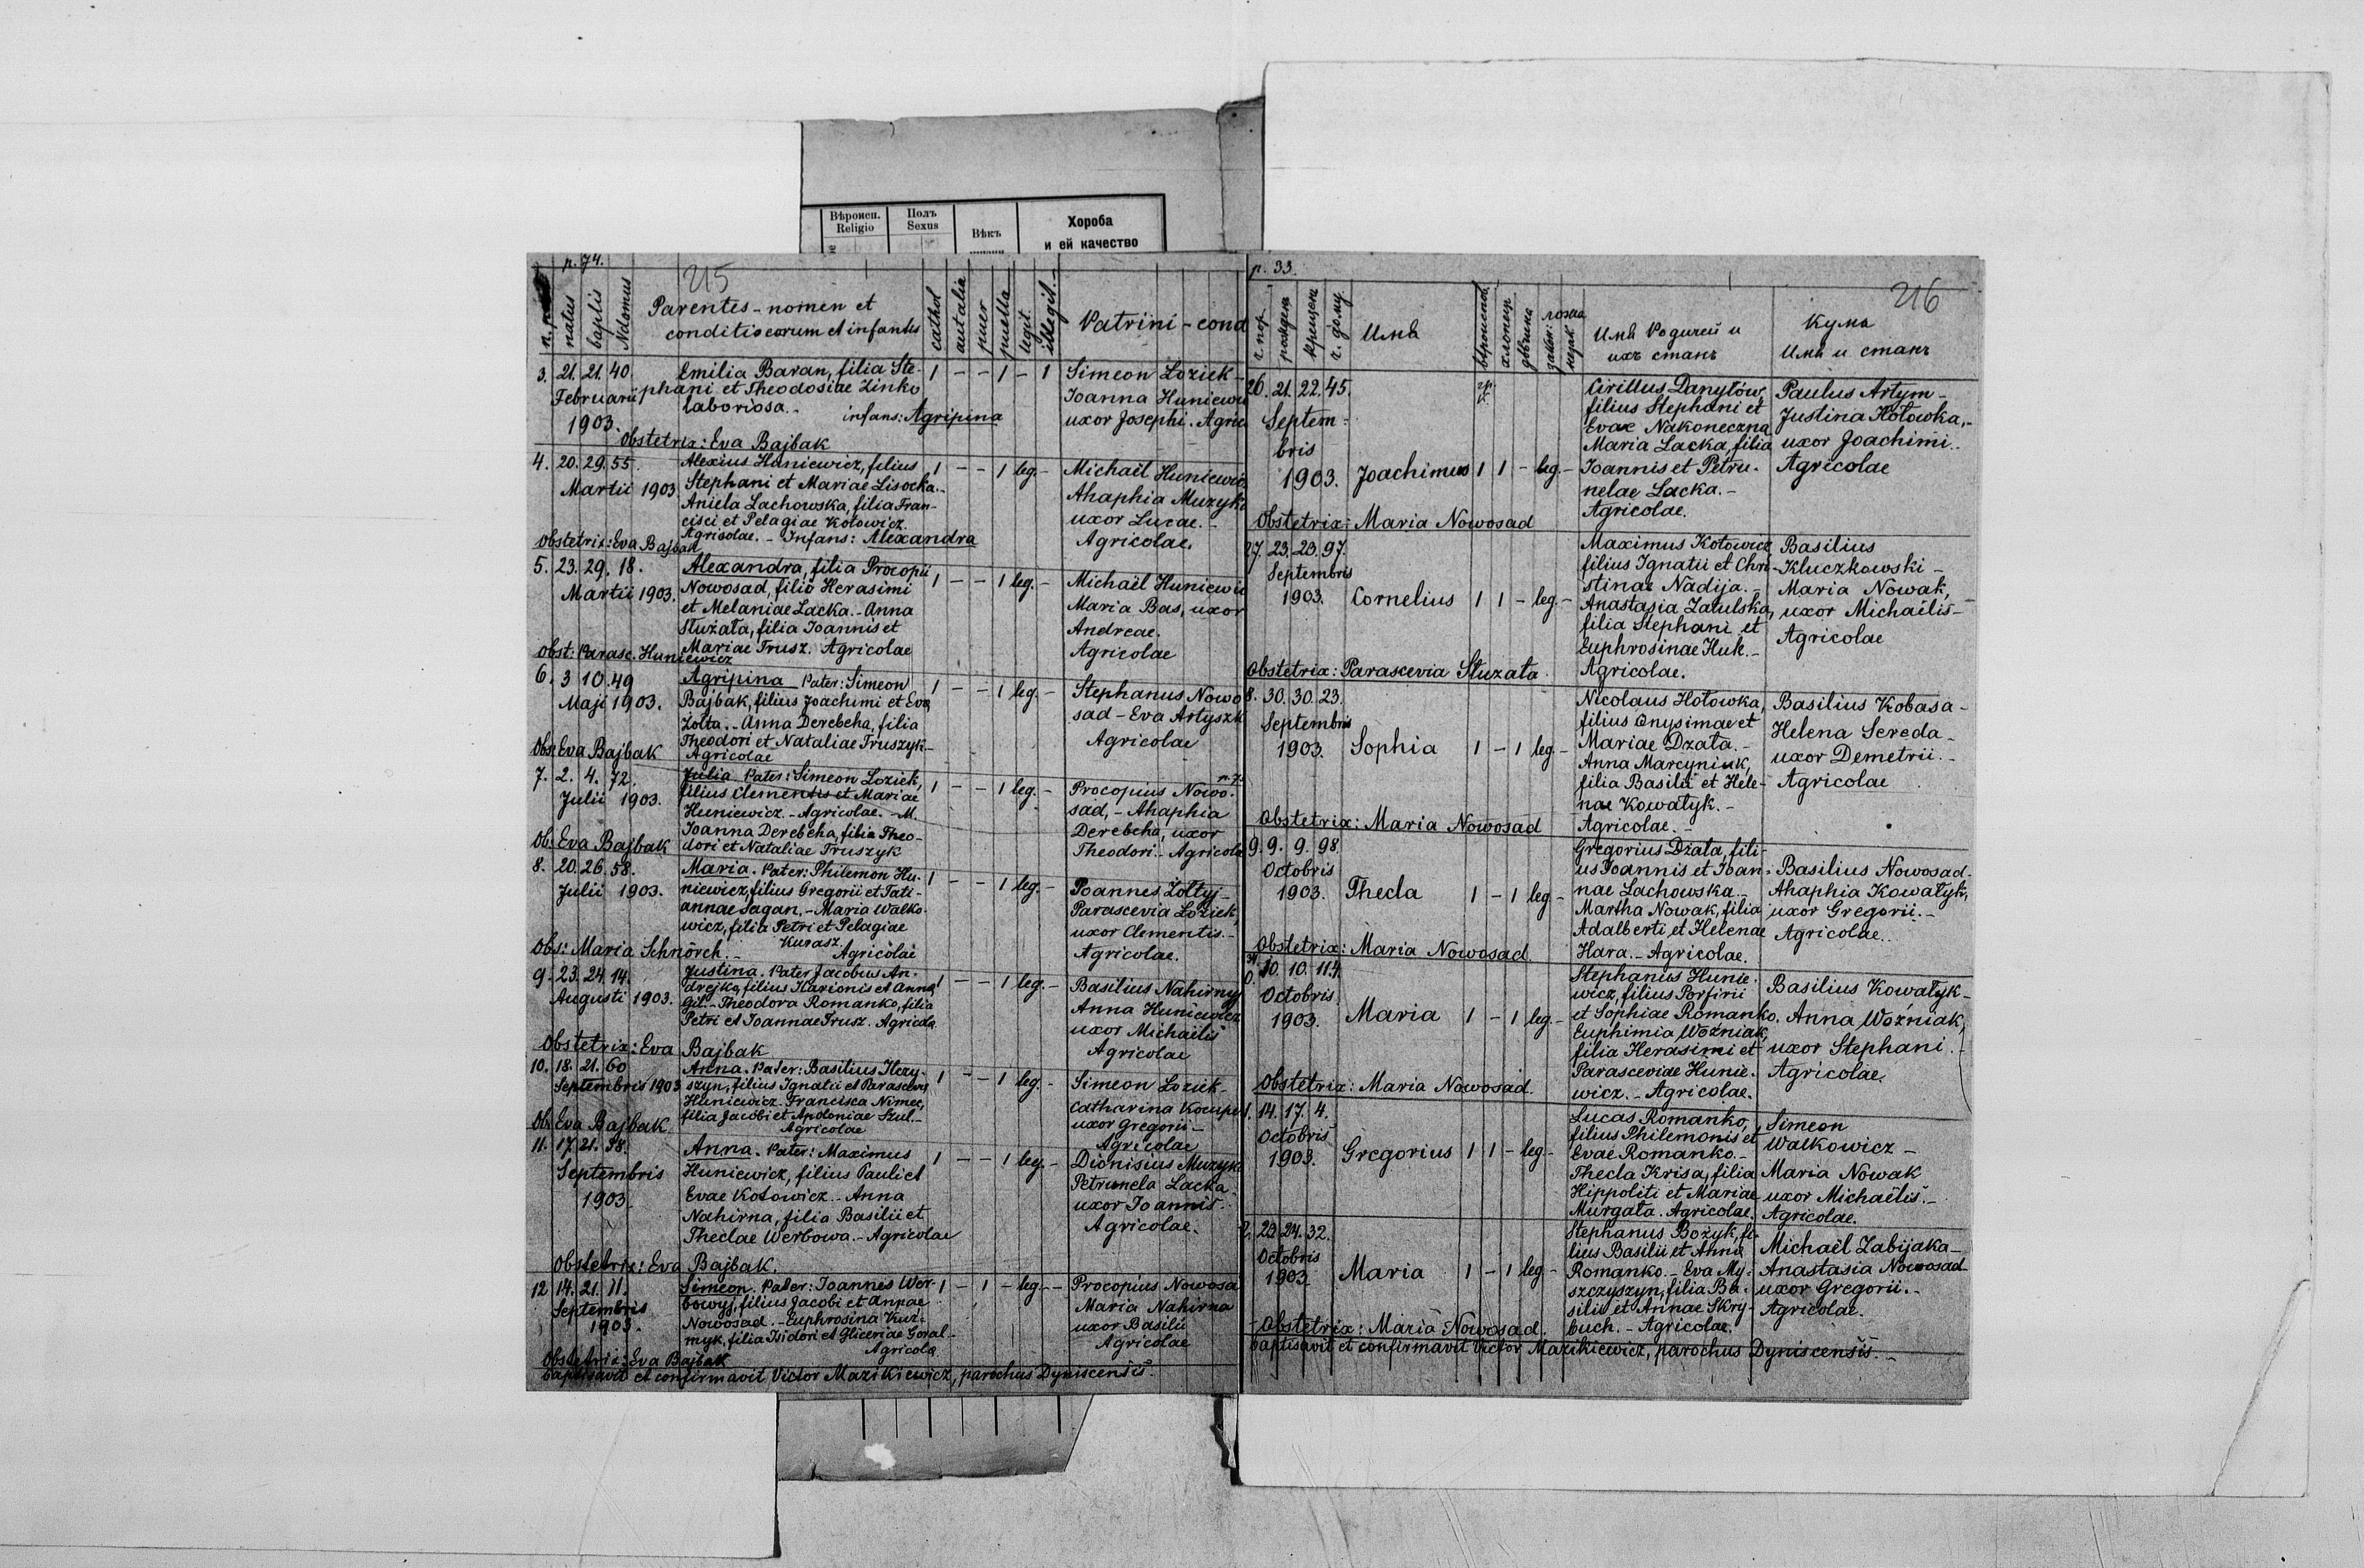 Вѣроисп.
Religio
Полъ
Sexus
Вѣкъ
Хороба
и ей качество
p. 74.
215
natus
baptis
N domus
Parentes - nomen et
conditio eorum et infantis
cathol
aut alia
puer
puella
legit.
illegit.
Patrini - cond
3. 21. 21. 40. Emilia Baran, filia Ste- 1 - - 1 - 1 Simeon Loziek -
Februarii phani et Theodosiae Zinko Joanna Huniewi
1903. laboriosa. - infans: Agripina uxor Josephi. Agric
Obstetrix: Eva Bajbak
4. 20. 29. 55. Alexius Huniewicz, filius 1 - - 1 leg. - Michaël Huniewic
Martii 1903. Stephani et Mariae Lisocka. - Ahaphia Muzyk
Aniela Lachowska, filia Fran- uxor Lucae. -
cisci et Pelagiae Kotowicz. Agricolae.
Agricolae. - Infans: Alexandra
Obstetrix: Eva Bajbak
5. 23. 29. 18. Alexandra, filia Procopii 1 - - 1 leg. - Michaël Huniewic
Martii 1903. Nowosad, filio Herasimi Maria Bas, uxor
et Melaniae Lacka. - Anna Andreae.
Stuzata, filia Joannis et Agricolae
Mariae Trusz. Agricolae
Obst: Parasc. Huniewicz
6. 3 10. 49 Agripina Pater: Simeon 1 - - 1 leg. - Stephanus Nowo
Maji 1903. Bajbak, filius Joachimi et Eva sad - Eva Artyszk
Zolta. - Anna Derebcha, filia Agricolae
Theodori et Nataliae Truszyk -
Agricolae
Obs: Eva Bajbak
7. 2. 4. 72. Julia Pater: Simeon Loziek, 1 - - 1 leg. - Procopius Nowo-
Julii 1903. filius Clementis et Mariae sad, - Ahaphia
Huniewicz. - Agricolae. - M. Derebcha, uxor
Joanna Derebcha, filia Theo- Theodori. - Agricola
dori et Nataliae Truszyk
Ob: Eva Bajbak
8. 20. 26. 58. Maria. Pater: Philemon Hu- 1 - - 1 leg. - Joannes Zoltyj -
Julii 1903. niewicz, filius Gregorii et Tati- Parascevia Loziek,
annae Sagan. - Maria Walko- uxor Clementis. -
wicz, filia Petri et Pelagiae Agricolae.
Kurasz. Agricolae
Obs: Maria Schnörch. -
9. 23. 24. 14. Justina. Pater Jacobus An- 1 - - 1 leg. - Basilius Nahirnyj
Augusti 1903. drejko, filius Harionis et Anna Anna Huniewicz
Gil. - Theodora Romanko, filia uxor Michaëlis
Petri et Joannae Trusz. Agricola Agricolae
Obstetrix: Eva Bajbak
10. 18. 21. 60 Anna. Pater: Basilius Hry- 1 - - 1 leg. - Simeon Loziek -
Septembris 1903 szyn, filius Ignatii et Parascevy Catharina
Huniewicz. Francisca Nimec, uxor Gregorii -
filia Jacobi et Apoloniae Szul. - Agricolae
Agricolae
Ob: Eva Bajbak
11. 17. 21. 58. Anna. Pater: Maximus 1 - - 1 leg. - Dionisius Muzyk
Septembris Huniewicz, filius Pauli et Petrunela Lacka
1903 Evae Kotowicz. - Anna uxor Joannis.
Nahirna, filia Basilii et Agricolae.
Theclae Werbowa. - Agricolae
Obstetrix: Eva Bajbak.
12 14. 21. 11. Simeon. Pater: Joannes Wer- 1 - 1 - leg. - - Procopius Nowosa
Septembris bowyj, filius Jacobi et Annae Maria Nahirna
1903. Nowosad. - Euphrosina Kuz- uxor Basilii
myk, filia Isidori et Gliceriae Goral - Agricolae
Agricola
Obstetrix: Eva Bajbak
baptisavit et confirmavit Victor Mazikiewicz, parochus Dyniscensis.
p. 33.
216
ч. пор.
рожден
крищен
ч. дому.
Имѣ
вѣроисповѣд.
хлопець
дѣвчина
закон:
Имѣ Родичей и
ихъ станъ
Кумы
Имѣ и станъ
26. 21. 22. 45. Cirillus Danyłów, Paulus Artym -
Septem- filius Stephani et Justina Hołowka, -
bris Evae Nakoneczna uxor Joachimi..
1903. Joachimus 1 1 - leg. - Maria Lacka, filia Agricolae
Joannis et Petru-
nelae Lacka. -
Agricolae.
Obstetrix: Maria Nowosad
27. 23. 23. 97. Maximus Kotowicz Basilius
Septembris filius Ignatii et Chri- Kluczkowski -
1903. Cornelius 1 1 - leg. - stinae Nadija. - Maria Nowak,
Anastasia Zatulska, uxor Michaëlis -
filia Stephani et Agricolae
Euphrosinae Huk. -
Agricolae.
Obstetrix: Parascevia Stuzata
8. 30. 30. 23. Nicolaus Hołowka, Basilius Kobasa -
Septembris filius Onysimae et Helena Sereda -
1903. Sophia 1 - 1 leg. - Mariae Dzata. - uxor Demetrii. -
Anna Marcyniuk, Agricolae
filia Basilii et Hele-
nae Kowałyk. -
Agricolae. -
Obstetrix: Maria Nowosad
9. 9. 9. 98. Gregorius Dzata, fili- Basilius Nowosad -
Octobris us Joannis et Joan- Ahaphia Kowałyk,
1903. Thecla 1 - 1 leg - nae Lachowska. - uxor Gregorii. -
Martha Nowak, filia Agricolae..
Adalberti et Helenae
Hara. - Agricolae.
Obstetrix: Maria Nowosad.
0. 10. 10. 114. Stephanus Hunie- Basilius Kowałyk -
Octobris wicz, filius Porfirii Anna Woźniak,
1903. Maria 1 - 1 leg. - et Sophiae Romanko. uxor Stephani. -
Euphimia Woźniak, Agricolae.
filia Herasimi et
Parasceviae Hunie-
wicz. - Agricolae.
Obstetrix: Maria Nowosad.
1. 14. 17. 4. Lucas Romanko, Simeon
Octobris filius Philemonis et Walkowicz -
1903. Gregorius 1 1 - leg - Evae Romanko. - Maria Nowak
Thecla Krisa, filia uxor Michaëlis. -
Hippoliti et Mariae Agricolae.
Murgata. Agricolae.
2. 23 24. 32. Stephanus Bożyk, fi- Michaël Zabijaka -
Octobris lius Basilii et Anna Anastasia Nowosad -
1903. Maria 1 - 1 leg - Romanko. - Eva My- uxor Gregorii. -
szczyszyn, filia Ba- Agricolae.
silii et Annae Skry-
buch. - Agricolae.
- Obstetrix: Maria Nowosad.
baptisavit et confirmavit Victor Mazikiewicz, parochus Dyniscensis. -